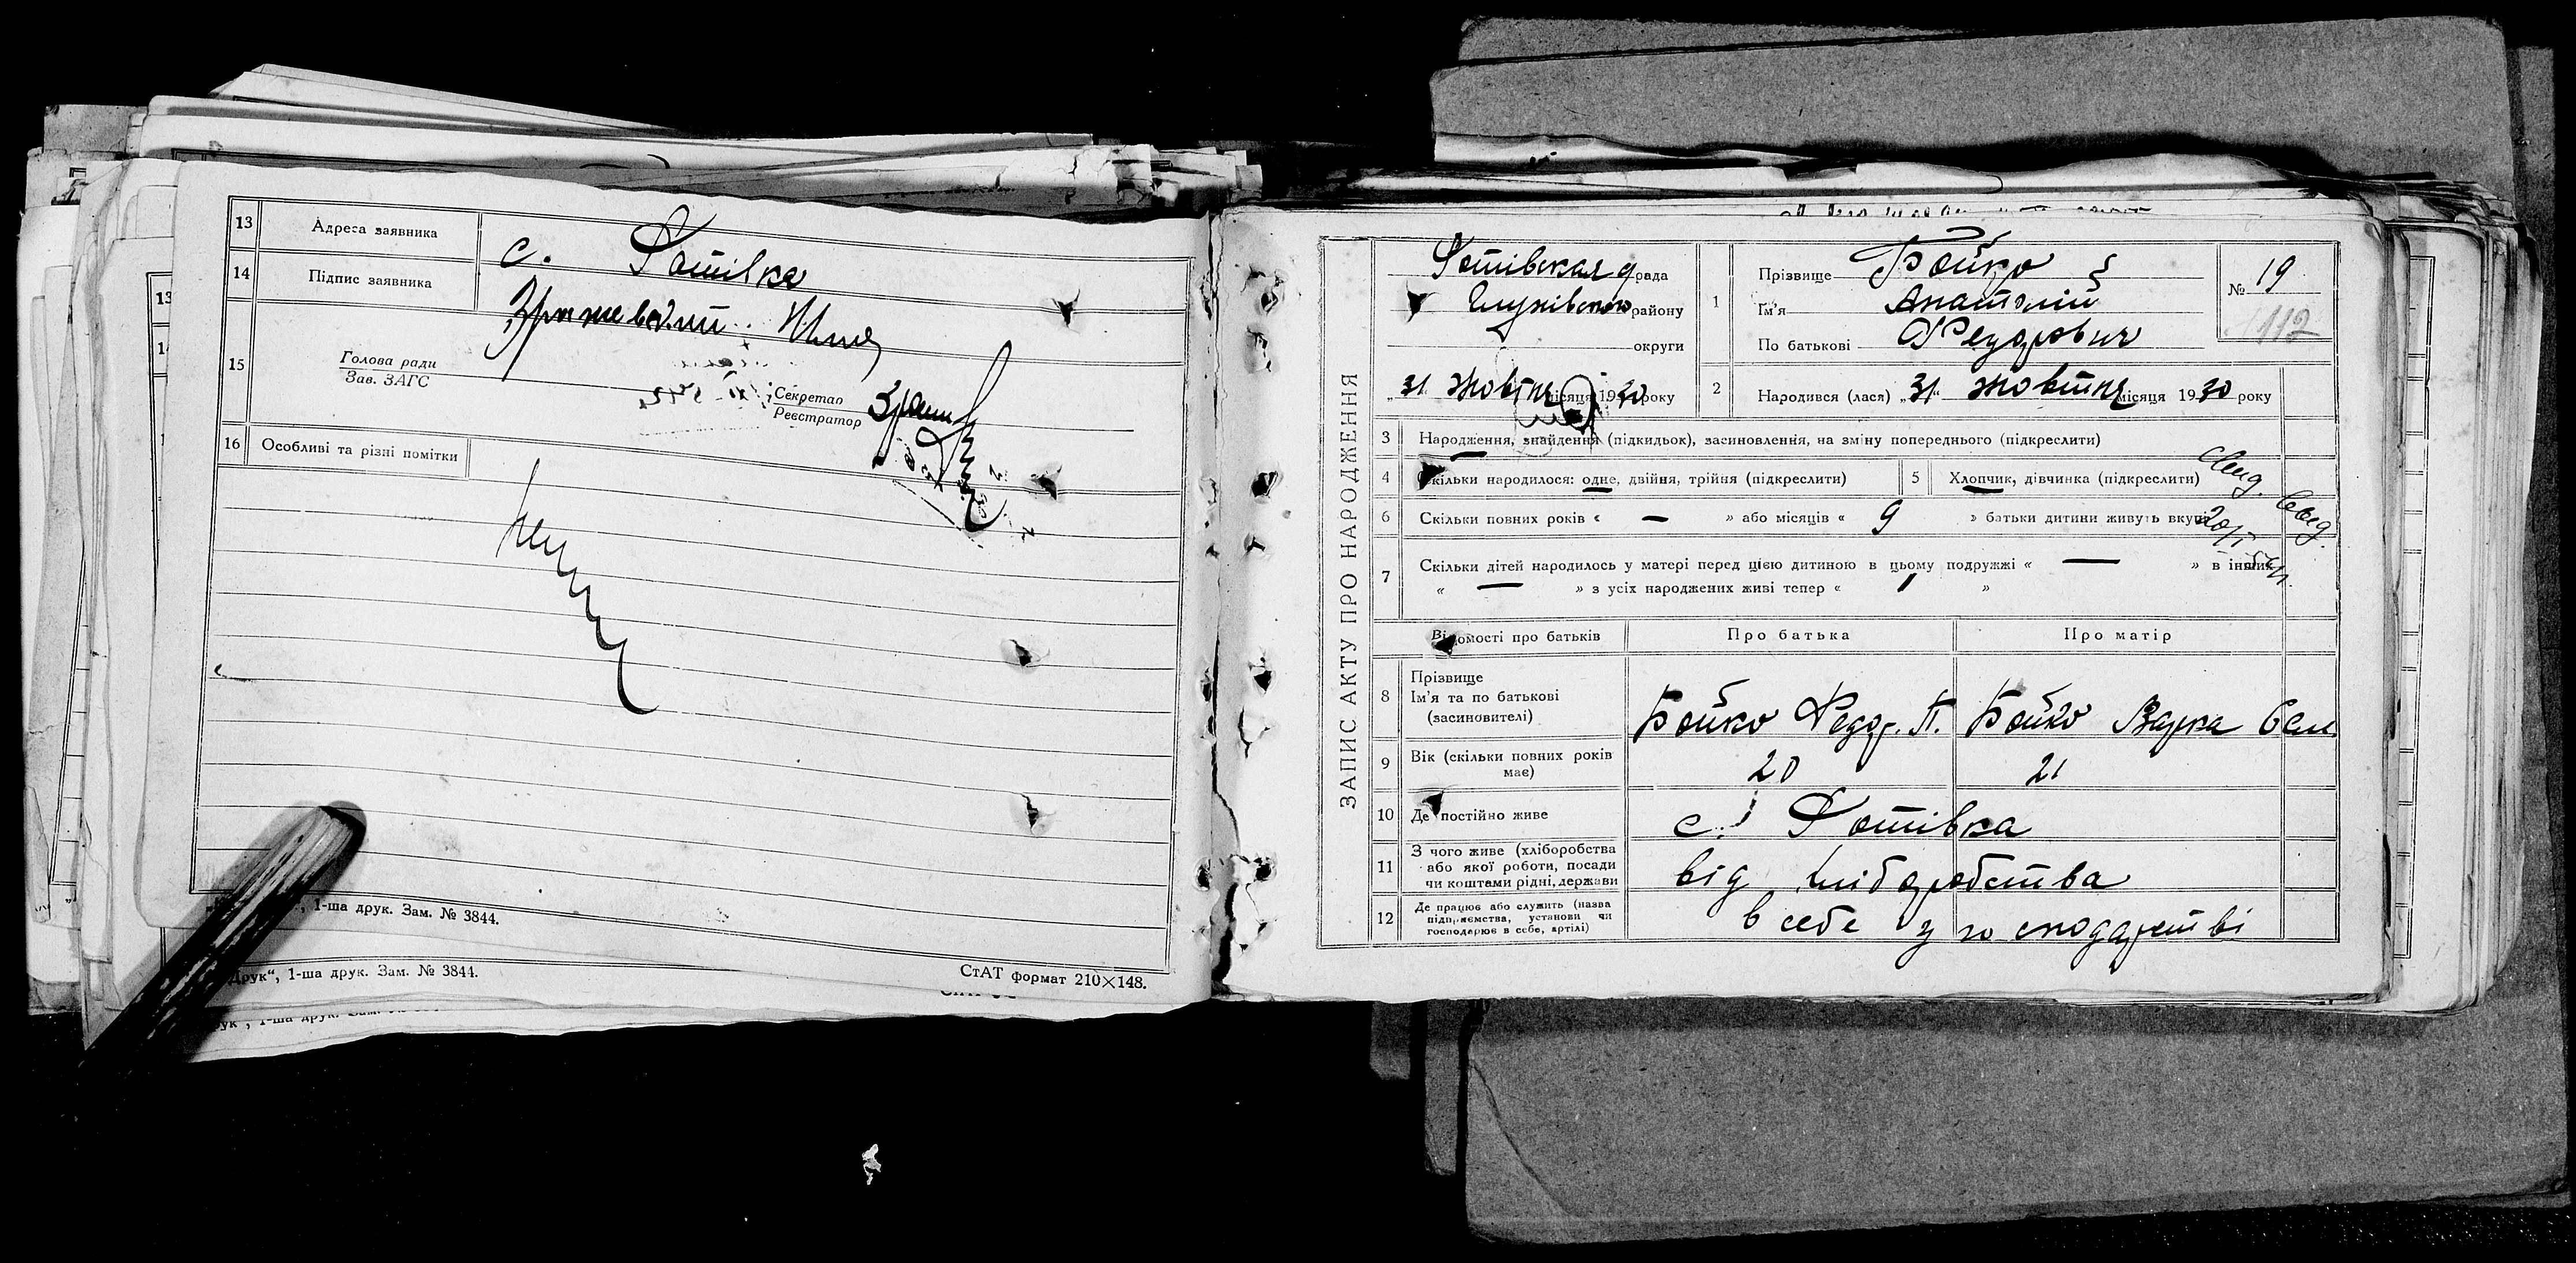 13 Адреса заявника с. Фотівка
14 Підпис заявника
15 Голова ради
Зав. ЗАГС
Секретар
Реєстратор
16 Особливі та різні помітки
1-ша друк. Зам. № 3844.
Друк", 1-ша друк. Зам. № 3844.
СтАТ формат 210×148.
ЗАПИС АКТУ ПРО НАРОДЖЕННЯ
Фотівская рада
Глухівського району
округи
„31 Жовтня місяця 1930 року
1 Прізвище Бойко
Ім'я Анатолій
По батькові Федорович
№ 19
112
2 Народився (лася) „31" жовтня місяця 1930 року
3 Народження, знайдення (підкидьок), засиновлення, на зміну попереднього (підкреслити)
4 Скільки народилося: одне, двійня, трійня (підкреслити)
5 Хлопчик, дівчинка (підкреслити)
6 Скільки повних років « — » або місяців « 9 » батьки дитини живуть вкупі
7 Скільки дітей народилось у матері перед цією дитиною в цьому подружжі « — » в інших
« — » з усіх народжених живі тепер « 1 »
Відомості про батьків
Про батька
Про матір
8 Прізвище
Ім'я та по батькові
(засиновителі)
Бойко Федор. П.
Бойко Варка Сем.
9 Вік (скільки повних років
має)
20
21
10 Де постійно живе
с. Фотівка
11 З чого живе (хліборобства
або якої роботи, посади
чи коштами рідні, держави
від хліборобства
12 Де працює або служить (назва
підприємства, установи чи
господарює в себе, артілі)
в себе у господарстві